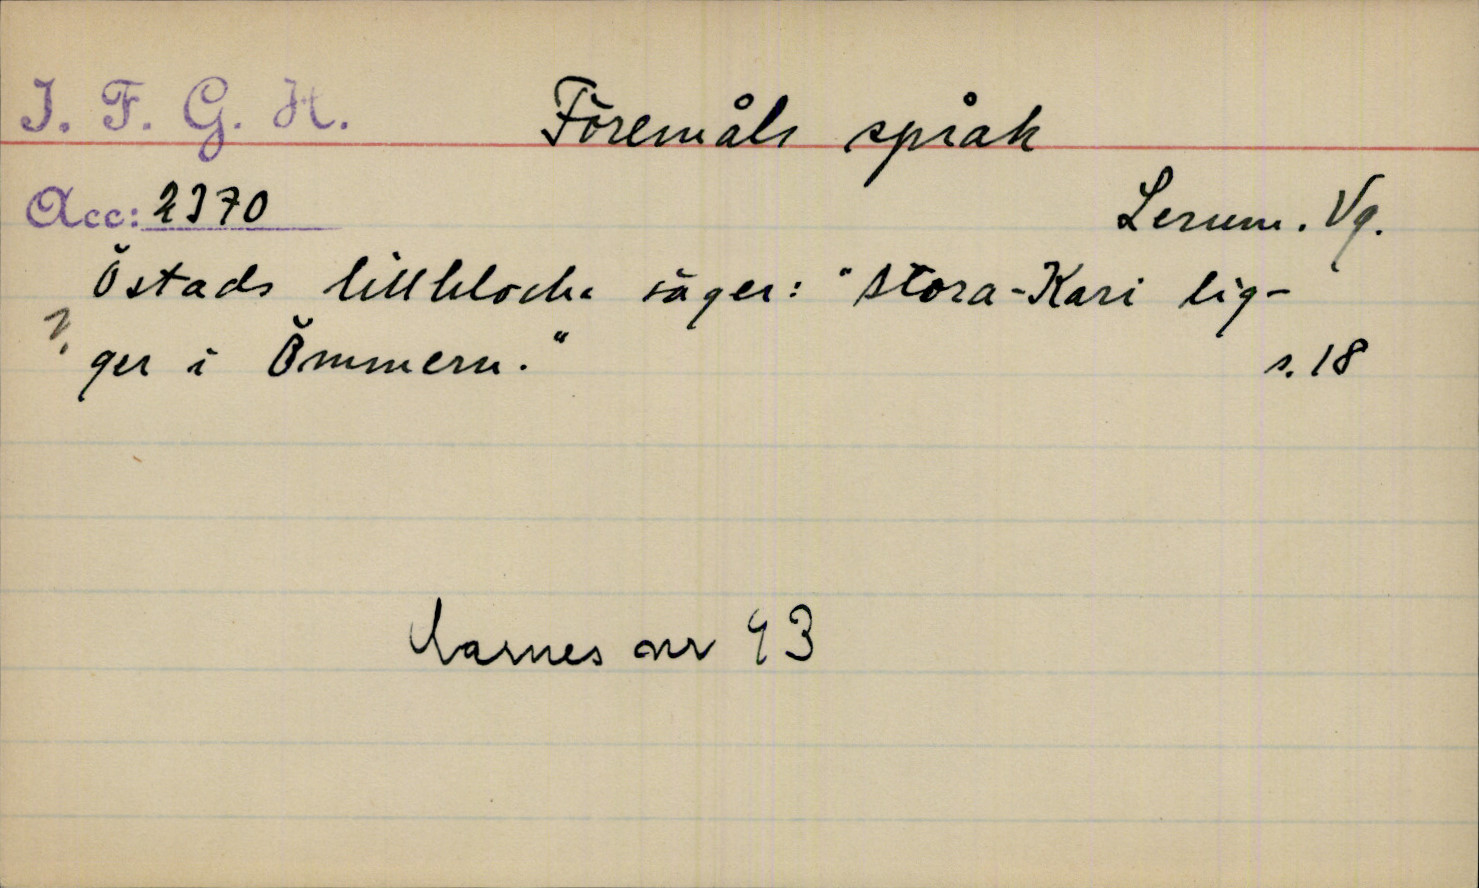 I. F. G. H. Föremåls språk
Acc: 2370 Lerum. Vg.
Östads lillklocka säger: "Stora-Kari lig-
ger i Ömmern." s. 18
nr 43